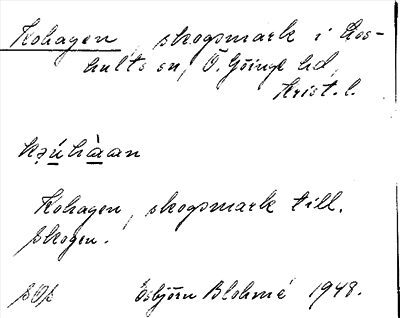 Kohagen, skogsmark i Los-
hults sn, Ö. Göinge hd,
Krist. l.
kǝúhàan
Kohagen, skogsmark till.
Skogen.
Esbjörn Blohmé 1948.